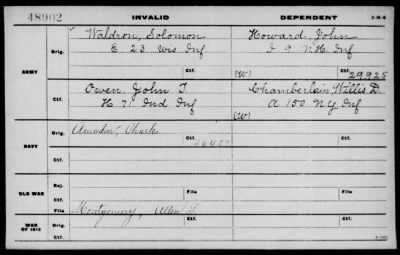 48902 INVALID DEPENDENT 3-M-6
Waldron, Solomon Howard, John
Orig. E 23 Wis Inf I 9 N.H. Inf
ARMY (W) Ctf. 29925
Owen, John T. Chamberlain, Willis D.
Ctf. H 71 Ind Inf A 150 N.Y Inf
(W)
Orig. Amadon, Charles
NAVY
Ctf.
Rej.
OLD WAR File File
Ctf.
Orig. Montgomery, Allen
WAR OF 1812
Ctf.